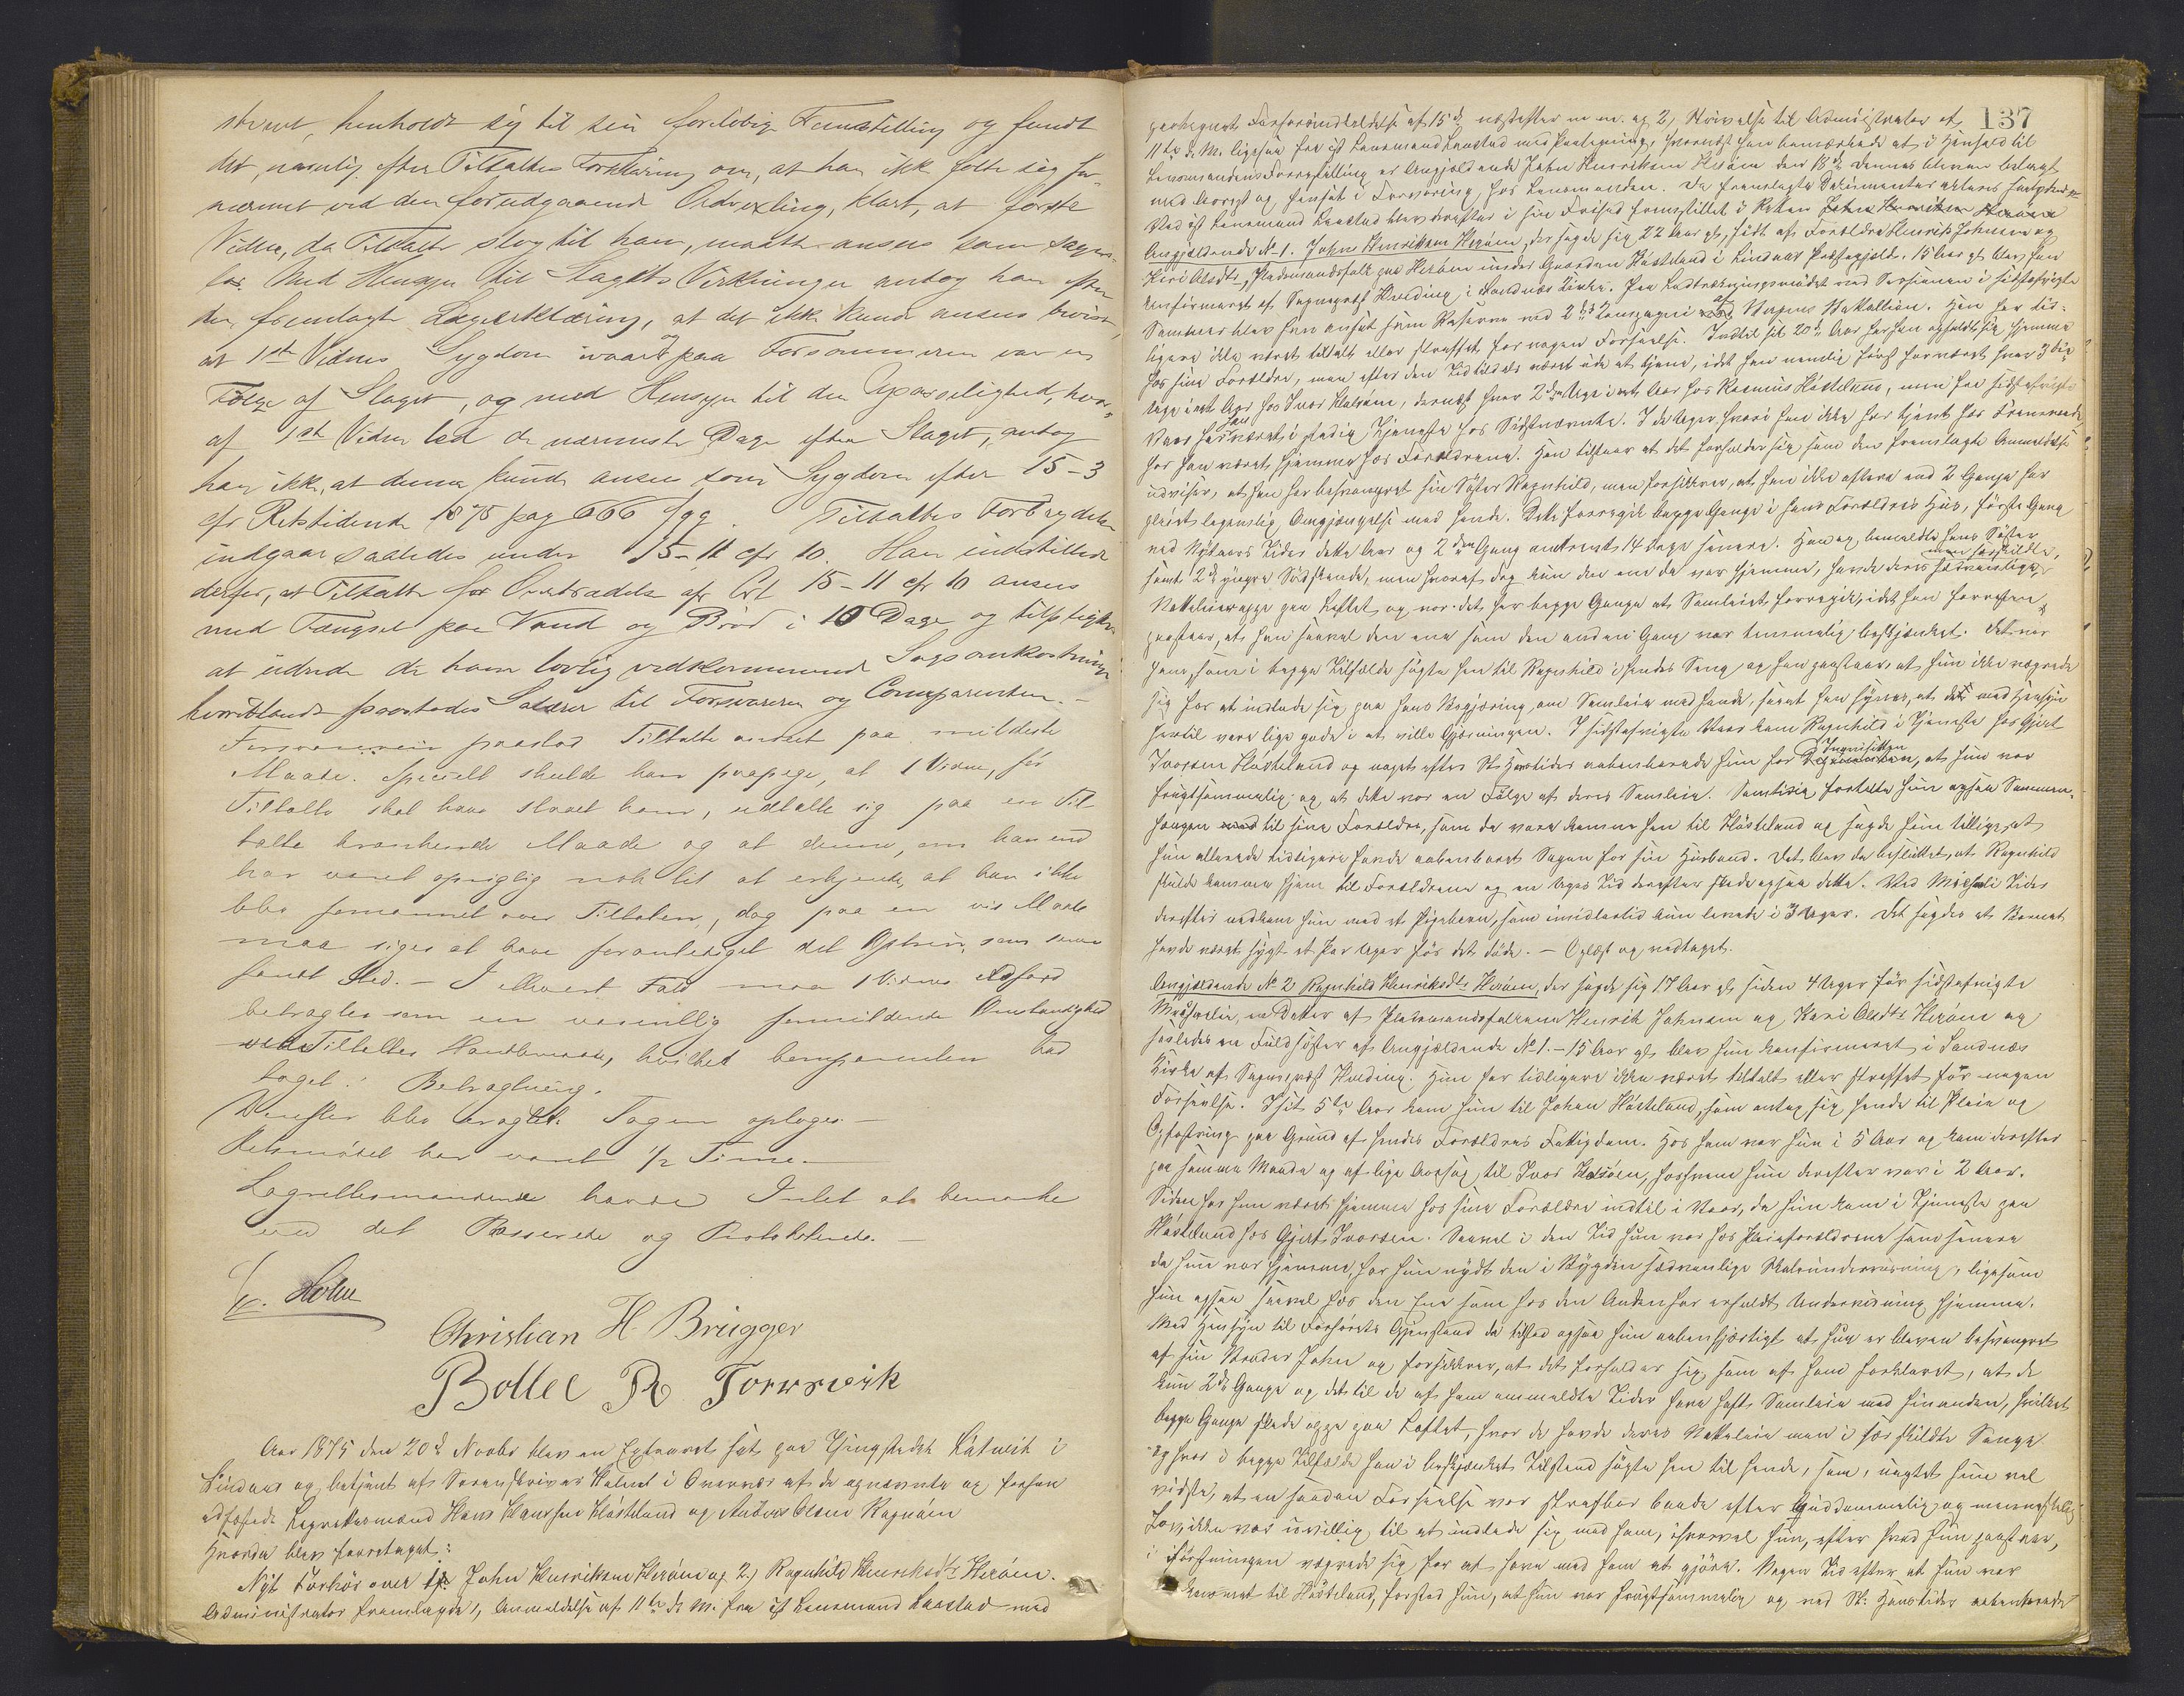 strant, henholdt sig til sin foreløbige Fremstilling og fandt
det, navnlig efter Tiltaltes Forklaring om, at han ikke følte sig for-
nærmet ved den forudgaaende Ordvexling, klart, at første
Vidne, da Tiltalte slog til ham, maatte ansees som sages-
løs. Med Hensyn til Slagets Virkninger antog han efter
den fremlagte Lægeerklæring, at det ikke kunde ansees bevist,
at 1ste Vidnes Sygdom ivaar og paa Forsommeren var en
Følge af Slaget, og med Hensyn til den Upasselighed, hvor-
af 1ste Vidne led de nærmeste Dage efter Slaget, antog
han ikke, at denne kunde ansees som Sygdom efter 15-3
cfr Retstidende 1875 pag 666 fgg. Tiltaltes Forbrydelse
indgaar saaledes under 15-11 cfr 10. Han indstillede
derfor, at Tiltalte for Overtrædelse af Crl 15-11 cfr 10 ansees
med Fængsel paa Vand og Brød i 10 Dage og tilpligtes
at udrede de ham lovlig vedkommende Sagsomkostninger
hvoriblandt paastodes Salærer til Forsvareren og Comparenten.-
Forsvareren paastod Tiltalte anseet paa mildeste
Maade. Specielt skulde han paapege, at 1 Vidne, før
Tiltalte skal have slaaet ham, udtalte sig paa en Til-
talte krænkende Maade og at denne, om han end
har været oprigtig nok til at erkjende, at han ikke
blev fornærmet over Tiltalen, dog paa en vis Maade
maa siges at have foranlediget det Optrin, som
fandt Sted.- I ethvert Fald maa 1 Vidnes Adfærd
betragtes som en væsentlig formildende Omstændighed
ved Tiltaltes Handlemaade, hvilket Comparenten bad
taget i Betragtning.
Derefter blev afsagt: Sagen optages.-
Retsmødet har varet 1/2 Time.-
Lagrettesmændene havde Intet at bemærke
ved det Passerede og Protokollerede.-
Holm
Christian H. Brügger
Bottel R Torsvik
Aar 1875 den 20de Novbr blev en Extraret sat paa Thingstedet Kätveit i
Lindaas og betjent af Sorenskriver Holm i Overvær af de opnævnte og forhen
edfæstede Lagrettesmænd Hans Hanssen Håsteland og Anders Olsen Ragnøen
Hvorda blev foretaget:
Nyt Forhør over 1. John Henriksen Herøen og 2.) Ragnhild Henriksdtr Herøen.
Administrator fremlagde 1, Anmeldelse af 11te ds M. fra cst Lensmand Kaastad med
137
paategnet Forhørsindkaldelse af 15 ds næstefter m. m. og 2, Skrivelse til Administrator af
11te ds M. ligesaa fra cst Lensmand Kaastad med Paategning, hvornæst han bemærkede at i Henhold til
Lensmandens Forestilling er Angjældende John Henriksen Herøen den 18de dennes bleven belagt
med Arrest og hensat i Forvaring hos Lensmanden. De fremlagte Documenter acteres
Ved cst Lensmand Kaastad blev derefter i sin Frihed fremstillet i Retten John Henriksen Herøen
Angjældende No 1. John Henriksen Herøen, der sagde sig 22 Aar gl, født af Forældre Henrik Johnsen og
Kari Olsdtr, Pladsmandsfolk paa Herøen under Gaarden Håsteland i Lindaas Præstegjæld. 15 Aar gl blev han
konfirmeret af Sogneprest Hvoding i Sandnæs Kirke. Paa Udtrækningsmødet ved Sessionen i sidstafvigte
Sommer blev han ansat som Reserve ved 2det Kompagni af Bergens Bataillon. Han har tid-
ligere ikke været tiltalt eller straffet for nogen Forseelse. Indtil sit 20de Aar har han opholdt sig hjemme
hos sine Forældre, men efter den Tid tildels været ude at tjene, idet han nemlig først har været hver 3die
Uge i et Aar hos Iver , dernæst hver 2den Uge i et Aar hos Rasmus Håsteland, men fra sidstafvigte
Vaar har han været i stadig Tjeneste hos Sidstnævnte. I de Uger hvori han ikke har tjent hos Fremmede,
har han været hjemme hos Forældrene. Han tilstaar at det forholder sig som den fremlagte Anmeldelse
udviser, at han har besvangret sin Søster Ragnhild, men forsikkrer, at han ikke oftere end 2 Gange har
pleiet legemlig Omgjængelse med hende. Dette foregik begge Gange i hans Forældres Hus, første Gang
ved Nytaars Tider dette Aar og 2den Gang omtrent 14 Dage senere. Han og bemeldte hans Søster
samt 2de yngre Sødskende, men hvoraf dog kun den ene da var hjemme, havde deres sædvanlige, men særskildte,
Natteleier oppe paa Loftet og var det her begge Gange at Samleiet foregik, idet han forresten
paastaar, at han saavel den ene som den anden Gang var temmelig beskjænket. Det var
ham, som i begge Tilfælde søgte hen til Ragnhild i hendes Seng og han paastaar at hun ikke vægrede
sig for at indlade sig paa hans Begjæring om Samleie med hende, samt han synes, at de med Hensyn
hertil vare lige gode i at ville Gjerningen. I sidstafvigte Vaar kom Ragnhild i Tjeneste hos Gjert
Iversen Håsteland og noget efter St Hanstider aabenbarede hun for Inqvisitten, at hun var
frugtsommelig og at dette var en Følge af deres Samleie. Samtidig fortalte hun ogsaa Sammen-
hængen til sine Forældre, som da vare komne hen til Håsteland og sagde hun tillige, at
hun allerede tidligere havde aabenbaret Sagen for sin Husbond. Det blev da besluttet, at Ragnhild
skulde komme hjem til Forældrene og en Uges Tid derefter skede ogsaa dette. Ved Michaeli Tider
derefter nedkom hun med et Pigebarn, som imidlertid kun levede i 3 Uger. Det sagdes at Barnet
havde været sygt et Par Uger før det døde.- Oplæst og vedtaget.
Angjældende No 2 Ragnhild Henriksdtr Herøen, der sagde sig 17 Aar gl siden 4 Uger før sidstafvigte
Michaeli, en Datter af Pladsmandsfolkene Henrik Johnsen og Kari Olsdtr Herøen og
saaledes en Fuldsøster af Angjældende No 1.- 15 Aar gl blev hun konfirmeret i Sandnæs
Kirke af Sogneprest Hvoding. Hun har tidligere ikke været tiltalt eller straffet for nogen
Forseelse. I sit 5te Aar kom hun til Johan Håsteland, som antog sig hende til Pleie og
Opfostring paa Grund af hendes Forældres Fattigdom. Hos ham var hun i 5 Aar og kom derefter
paa samme Maade og af lige Aarsag til Iver , hos hvem hun derefter var i 2 Aar.
Siden har hun været hjemme hos sine Forældre indtil i Vaar, da hun kom i Tjeneste paa
Håsteland hos Gjert Iversen. Saavel i den Tid hun var hos Pleieforældrene som senere
da hun var hjemme, har hun nydt den i Bygden sædvanlige Skoleundervisning, ligesom
hun ogsaa saavel hos den Ene som hos den Anden har erholdt Undervisning hjemme.
Med Hensyn til Forhørets Gjenstand da tilstod ogsaa hun aabenhjertigt at hun er bleven besvangret
af sin Broder John og forsikkrer, at det forholder sig, som af ham forklaret, at de
kun 2de Gange og det til de af ham anmeldte Tider have havt Samleie med hinanden, hvilket
begge Gange skede oppe paa Loftet, hvor de havde deres Natteleie men i særskildte Senge
og hvor i begge Tilfælde han i beskjænket Tilstand søgte hen til hende, som, uagtet hun vel
vidste, at en saadan Forseelse var strafbar baade efter Guddommelig og menneskelig
Lov, ikke var uvillig til at indlade sig med ham, ihvorvel hun, efter hvad hun paastaar,
i Førstningen vægrede sig for at have med ham at gjøre. Nogen Tid efter at hun var
kommet til Håsteland, forstod hun, at hun var frugtsommelig og ved St: Hanstider aabenbarede